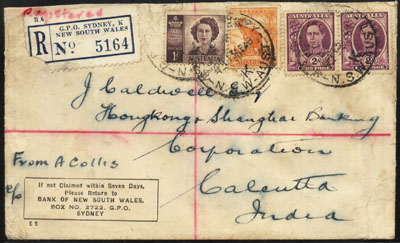 Registered
R
G.P.O. SYDNEY, K
NEW SOUTH WALES
No 5164
AUSTRALIA
1D
AUSTRALIA
2D
AUSTRALIA
2D
J Caldwell
Hongkong & Shanghai Banking
Corporation
Calcutta
India
From A Collis
c/o
If not Claimed within Seven Days,
Please Return to
BANK OF NEW SOUTH WALES,
BOX NO. 2722, G.P.O.
SYDNEY
E 5